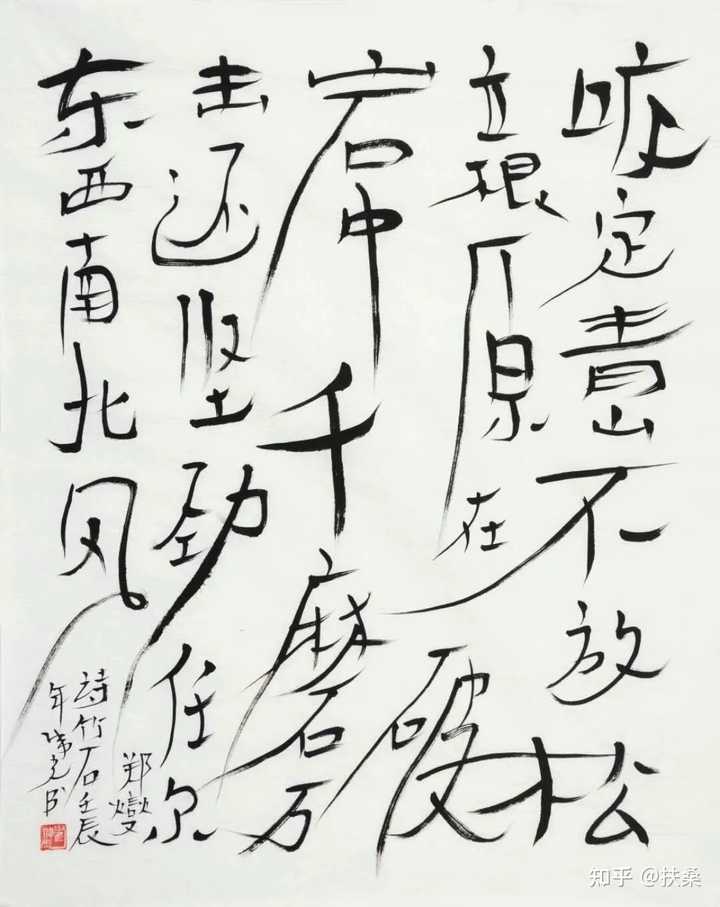 咬定青山不放松
立根原在破
岩中千磨万
击还坚劲任尔
东西南北风
郑燮
詩竹石壬辰
年书
知乎 @扶桑